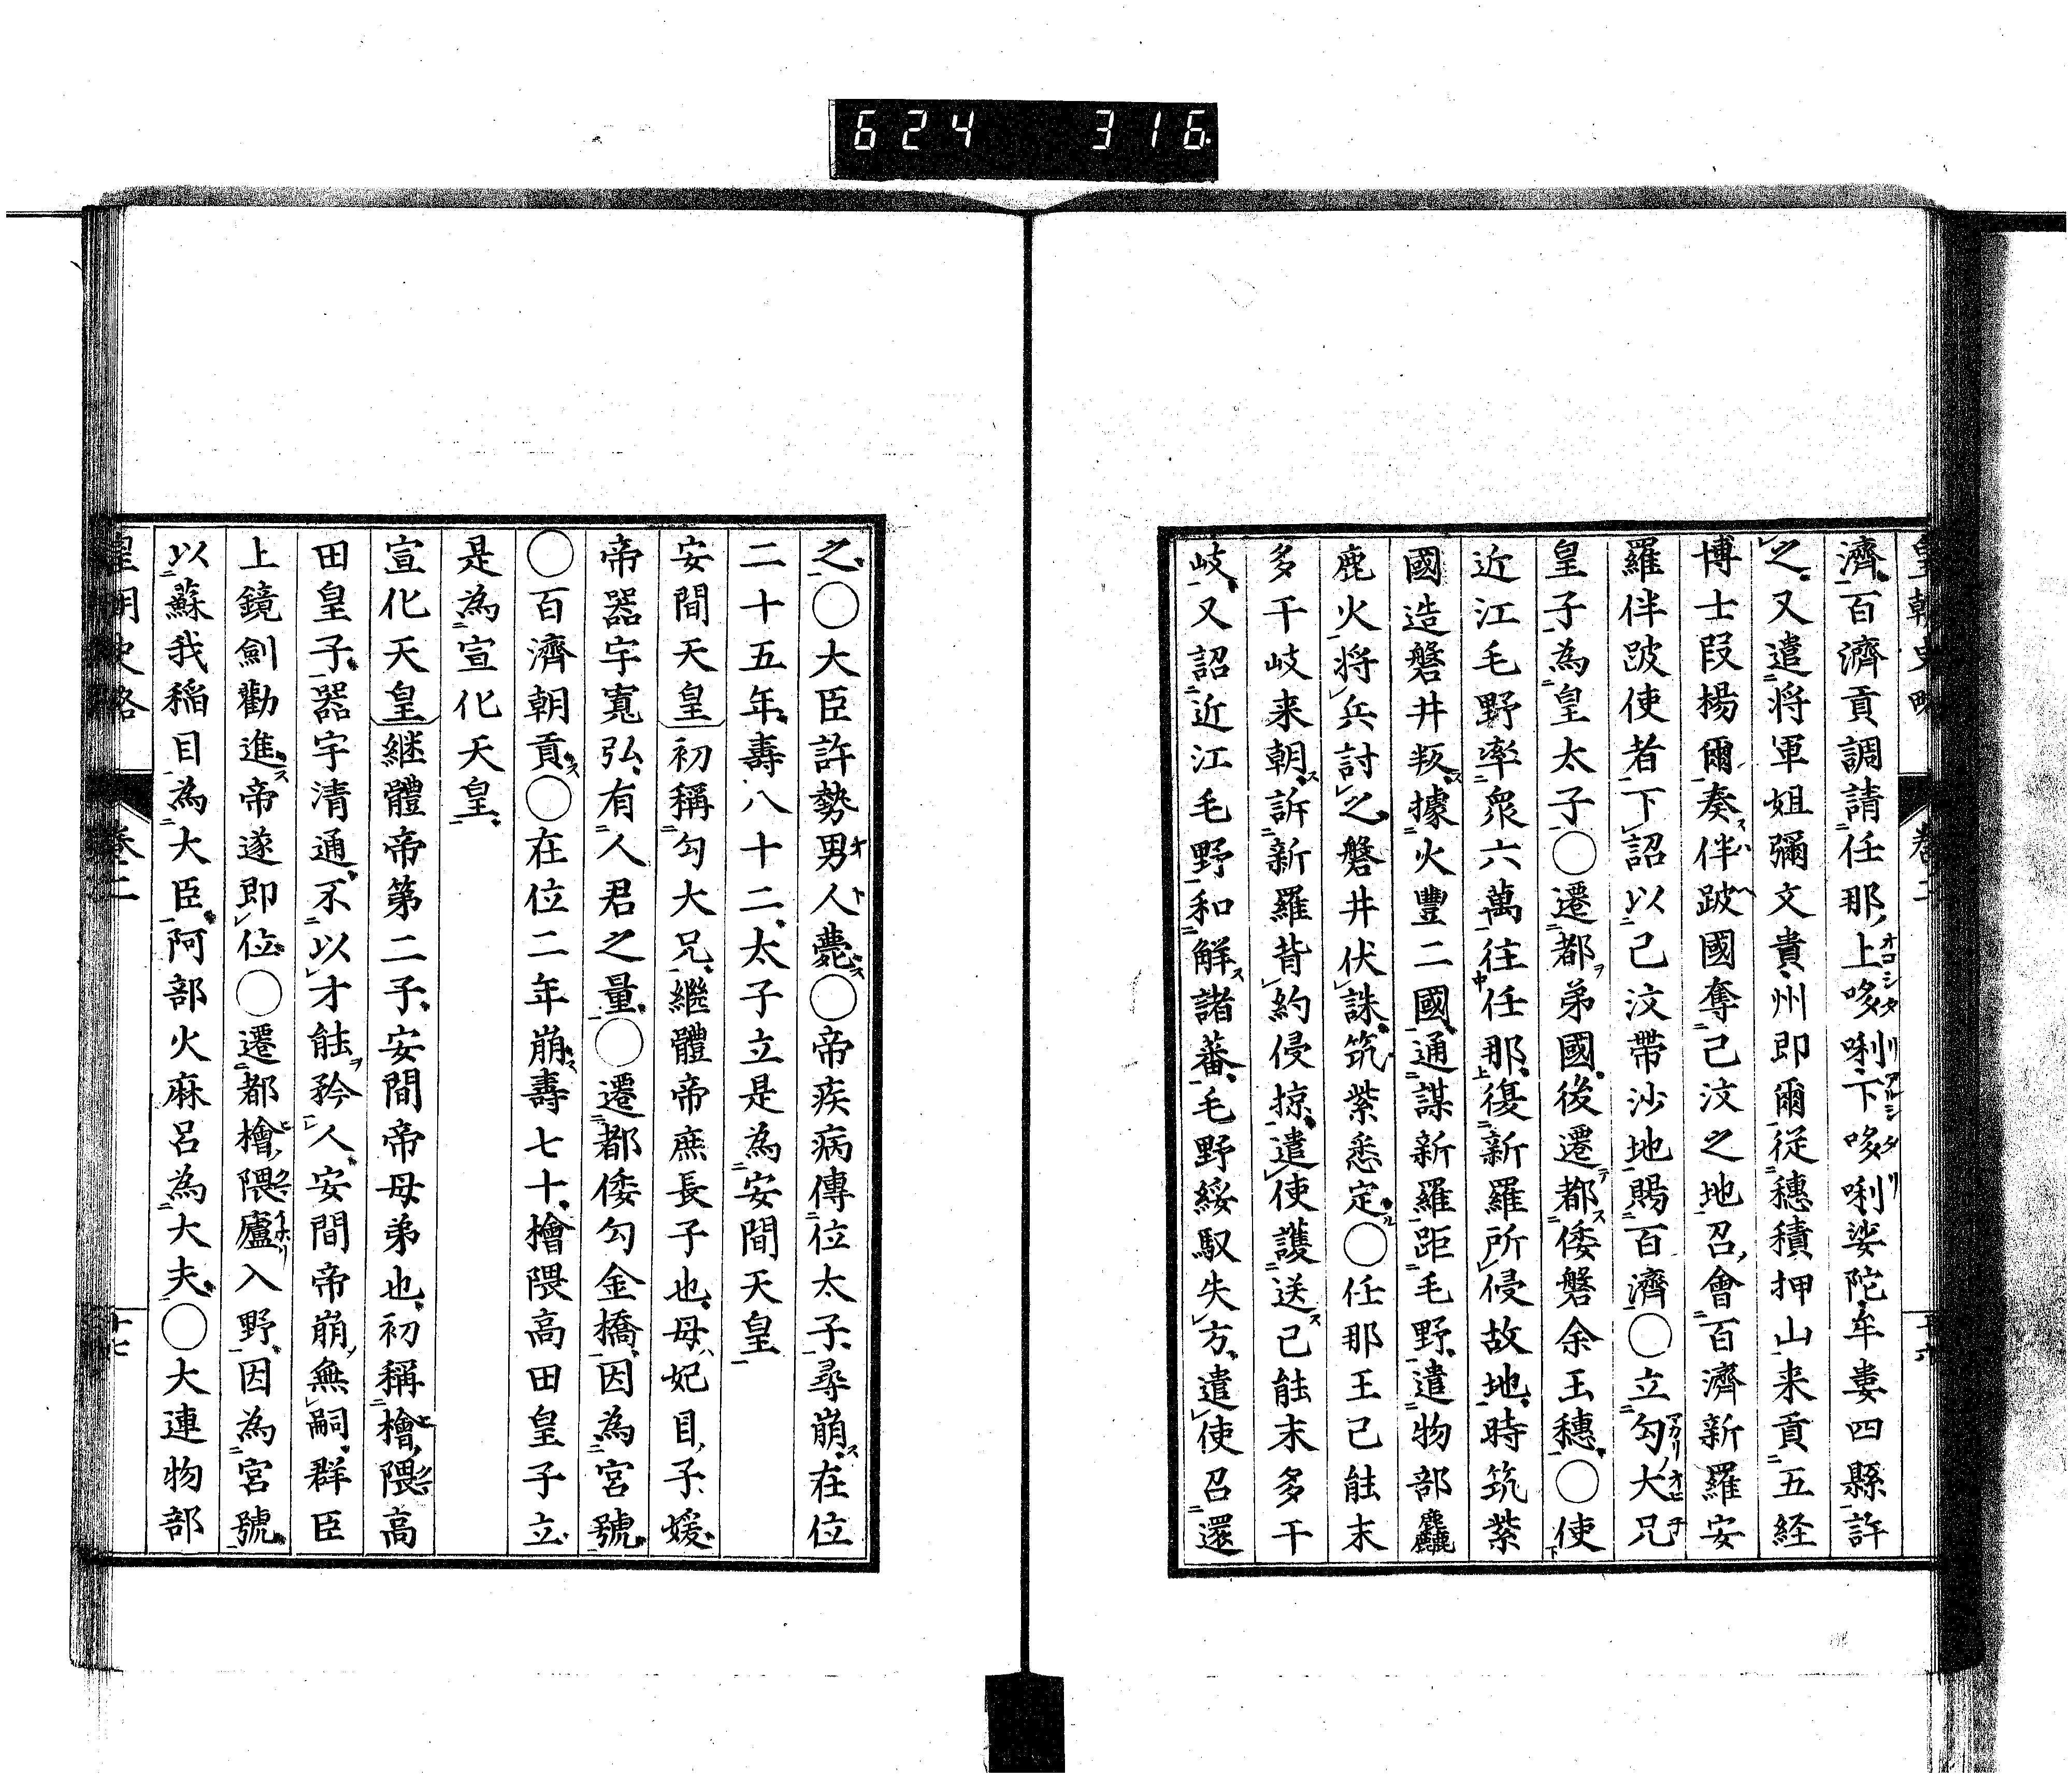 624 316
皇朝史略 卷二 十六
濟百濟貢調請任那上哆唎下哆唎娑陀牟婁四縣許
之又遣将軍姐彌文貴州即爾従穗積押山来貢五経
博士段楊爾奏伴跛國奪己汶之地召會百濟新羅安
羅伴跛使者下詔以己汶帶沙地賜百濟〇立勾大兄
皇子為皇太子〇遷都弟國後遷都倭磐余玉穗〇使
近江毛野率衆六萬往任那復新羅所侵故地時筑紫
國造磐井叛據火豐二國通謀新羅距毛野遣物部麤
鹿火将兵討之磐井伏誅筑紫悉定〇任那王己能末
多干岐来朝訴新羅背約侵掠遣使護送己能末多干
岐又詔近江毛野和解諸蕃毛野綏馭失方遣使召還
之〇大臣許勢男人薨〇帝疾病傳位太子尋崩在位
二十五年壽八十二太子立是為安間天皇
安間天皇初稱勾大兄繼體帝庶長子也母妃目子媛
帝器宇寬弘有人君之量〇遷都倭勾金橋因為宮號
〇百濟朝貢〇在位二年崩壽七十檜隈高田皇子立
是為宣化天皇
宣化天皇継體帝第二子安間帝母弟也初稱檜隈高
田皇子器宇清通不以才能矜人安間帝崩無嗣群臣
上鏡劍勸進帝遂即位〇遷都檜隈廬入野因為宮號
以蘇我稲目為大臣阿部火麻呂為大夫〇大連物部
皇朝史略 卷二 十七